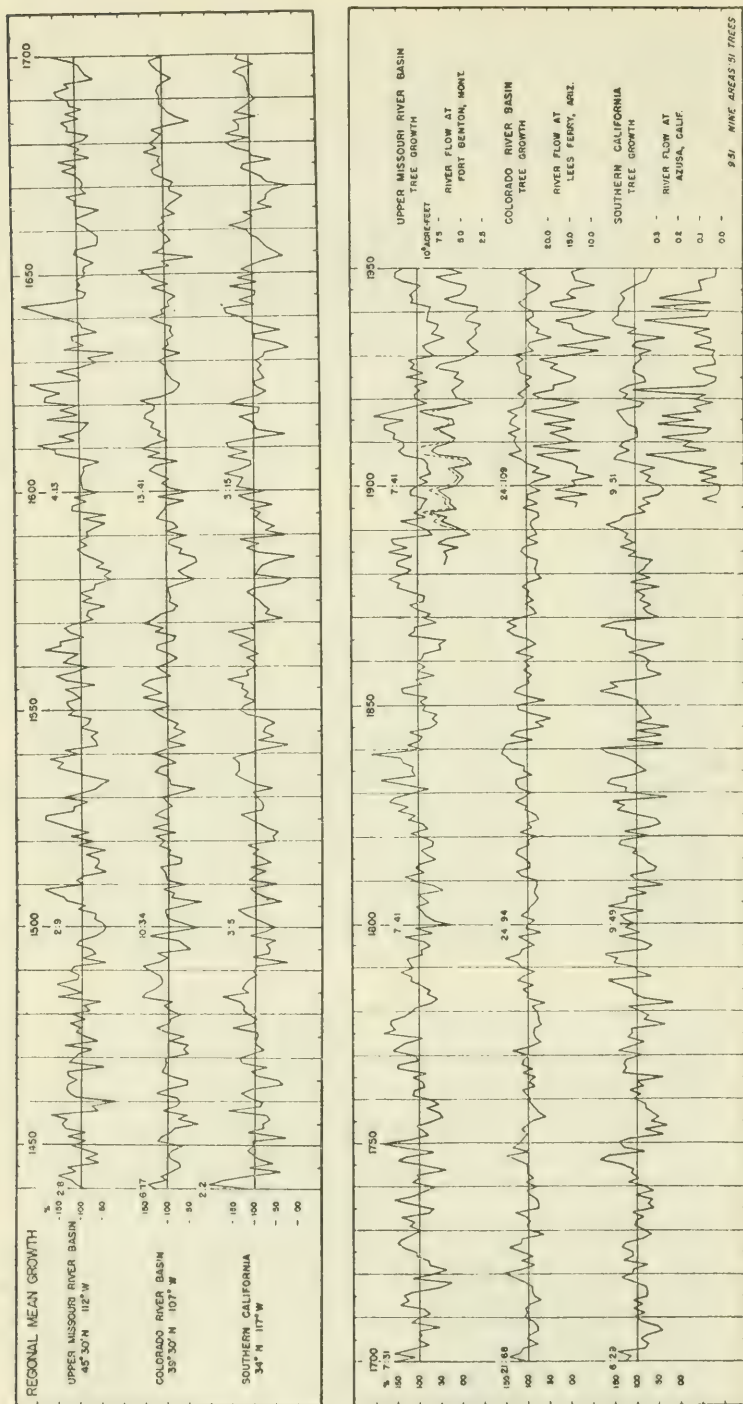 REGIONAL MEAN GROWTH
UPPER MISSOURI RIVER BASIN
45° 30' N 112° W
COLORADO RIVER BASIN
39° 30' N 107° W
SOUTHERN CALIFORNIA
34° N 117° W
%
150
100
50
150
100
50
150
100
50
00
1450
1500
1550
1600
1650
1700
2:8
2:9
4:13
6:17
10:34
13:41
2:2
3:5
3:15
%
150
100
50
150
100
50
00
150
100
50
00
1700
1750
1800
1850
1900
1950
7:31
7:41
7:41
21:68
24:94
24:109
6:29
9:49
9:51
UPPER MISSOURI RIVER BASIN
TREE GROWTH
10⁶ ACRE-FEET
7.5
5.0
2.5
RIVER FLOW AT
FORT BENTON, MONT.
COLORADO RIVER BASIN
TREE GROWTH
20.0
15.0
10.0
RIVER FLOW AT
LEES FERRY, ARIZ.
SOUTHERN CALIFORNIA
TREE GROWTH
0.3
0.2
0.1
0.0
RIVER FLOW AT
AZUSA, CALIF.
9:51 NINE AREAS: 51 TREES